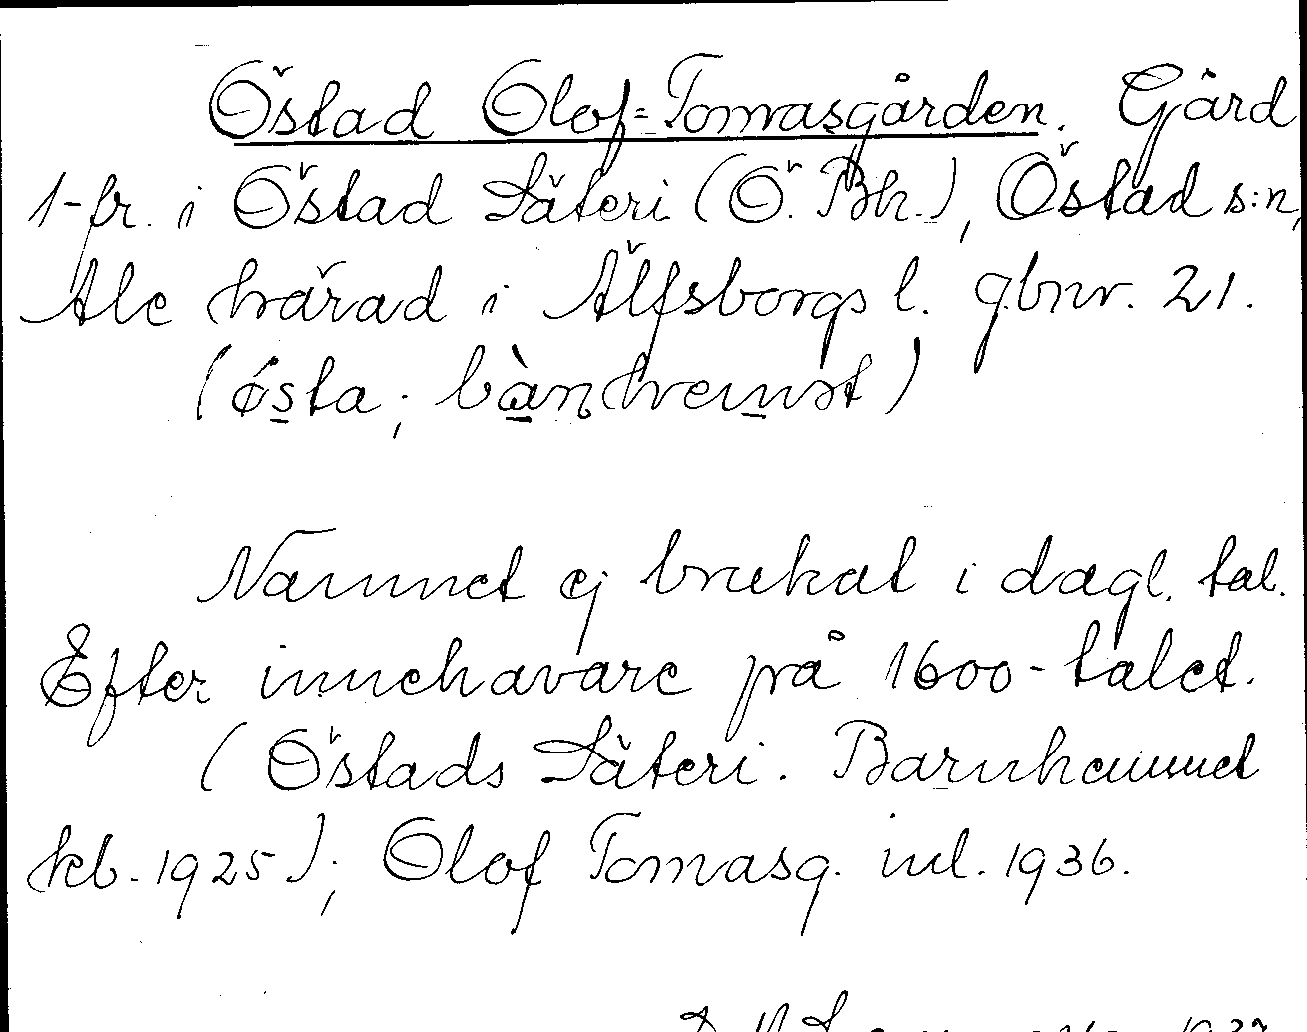 Östad Olof-Tomasgården. Gård
1-fr. i Östad Säteri (Ö. Bh.), Östad s:n,
Ale härad i Älfsborgs l. gbnr. 21.
(östa; bànhemst)
Namnet ej brukat i dagl. tal.
Efter innehavare på 1600-talet.
(Östads Säteri. Barnhemmet
kb. 1925); Olof Tomasg. inl. 1936.